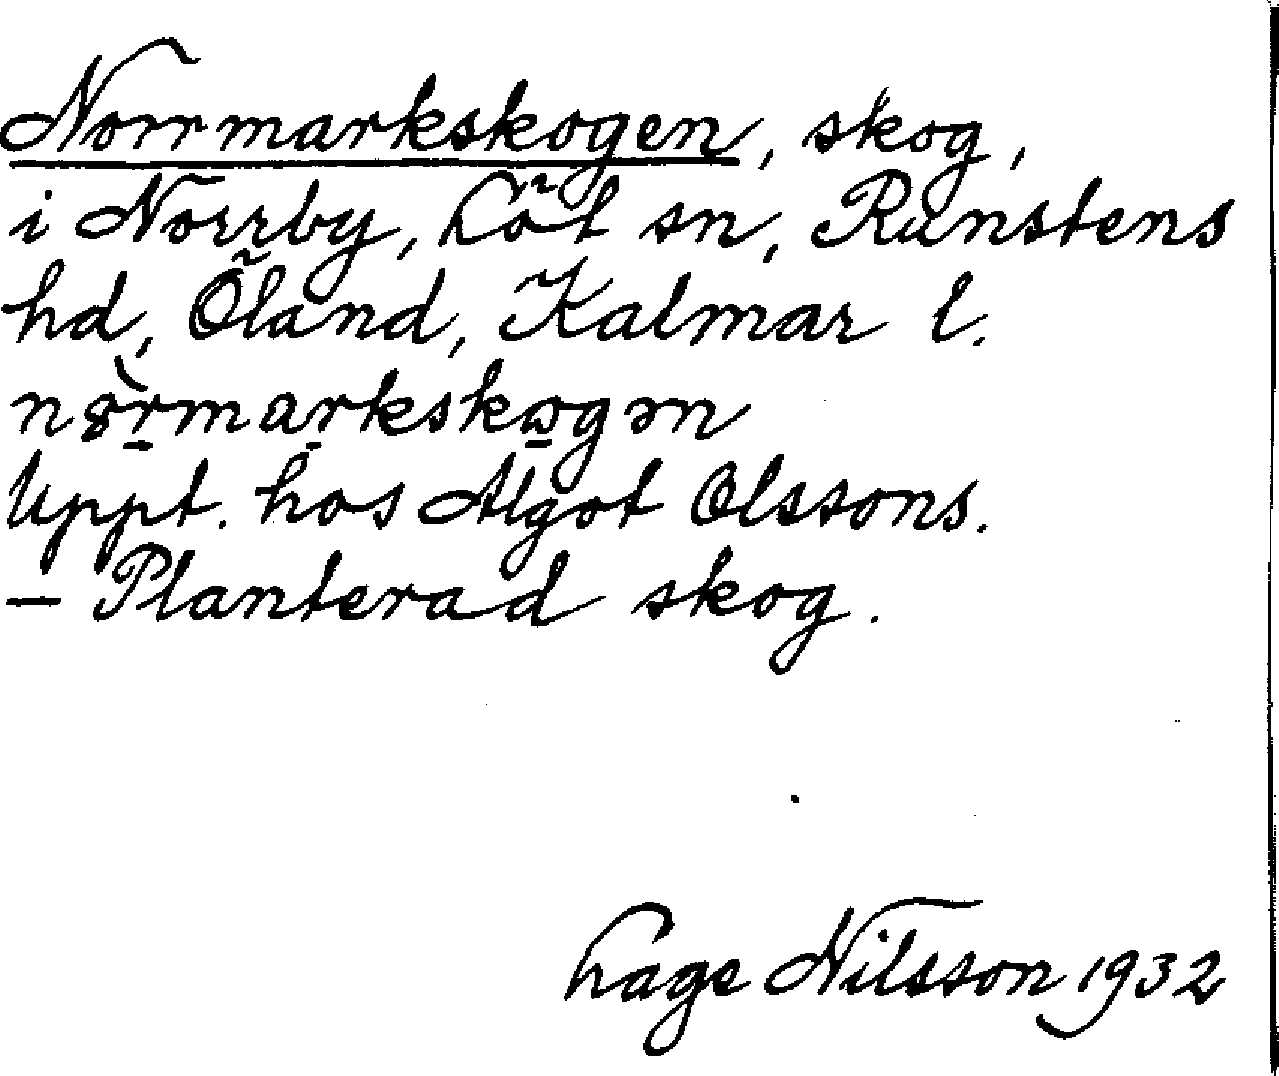 Norrmarkskogen, skog,
i Norrby, Löt sn, Runstens
hd, Öland, Kalmar l.
Uppt. hos Algot Olssons.
– Planterad skog.
Lage Nilsson 1932